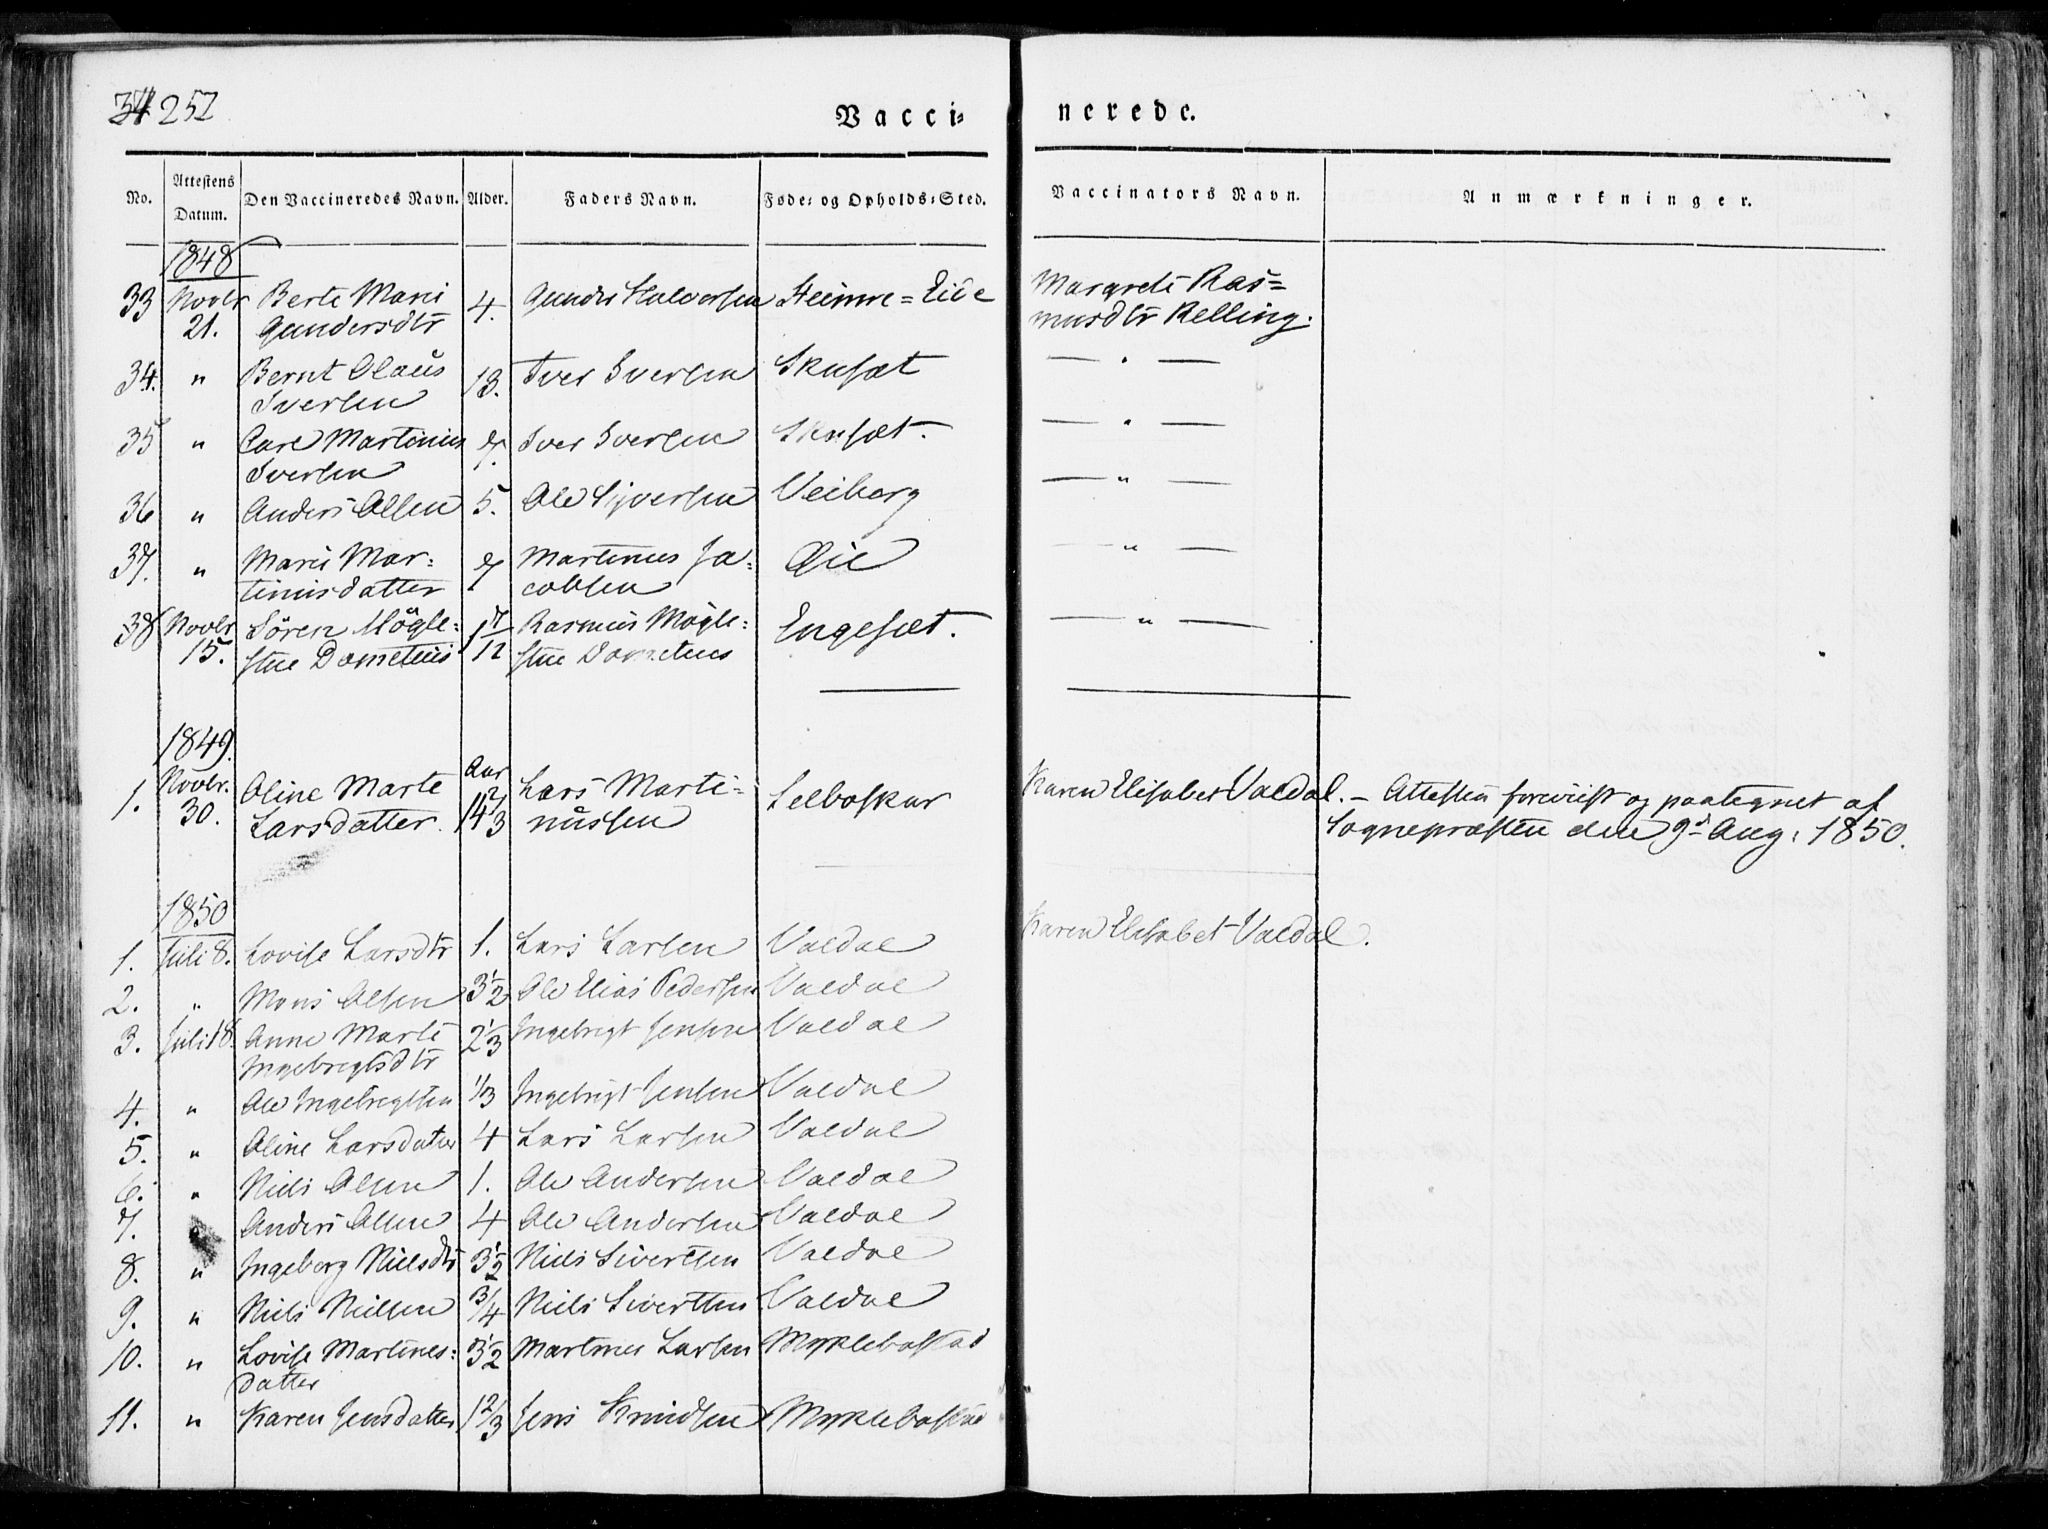 252
Vacci= nerede.
No. Attestens Datum. Den Vaccineredes Navn. Alder. Faders Navn. Føde= og Opholds=Sted. Vaccinators Navn. Anmærkninger.
1848
33 Novbr Berte Marie 4. Gunder Halvorsen Steinre=Eide Margrete Ras=
21. Gundersdtr musdtr Relling.
34. " Bernt Olaus 13. Iver Iversen Skusæt — " —
Iversen
35 " Carl Martinus 7. Iver Iversen Skusæt. — " —
Iversen
36 " Anders Olsen 5. Ole Syversen Veiberg — " —
37. " Marie Mar= 7 Martinus Ja= Øie — " —
tinusdatter cobsen
38 Novbr Sören Mögle= 1 7/12 Rasmus Mögle= Engesæt. — " —
15. stue Dometeius stue Dometeius
1849.
Aar
1. Novbr. Oline Marte 14 2/3 Lars Marti= Selboskar Karen Elisabet Valdal. – Attesten foreviist og paategnet af
30. Larsdatter. nussen Sognepræsten den 9d Aug: 1850.
1850
1. Juli 8. Lovise Larsdtr 1. Lars Larsen Valdal Karen Elisabet Valdal.
2. " Mons Olsen 3 1/2 Ole Elias Pedersen Valdal
3. Juli 18. Anne Marte 2 1/3 Ingebrigt Jensen Valdal
Ingebregtsdtr
4. " Ole Ingebregtsen 1/3 Ingebrigt Jensen Valdal
5. " Oline Larsdatter 4 Lars Larsen Valdal
6. " Niels Olsen 1. Ole Andersen Valdal
7. " Anders Olsen 4 Ole Andersen Valdal
8. " Ingeborg Nielsdtr 3 1/2 Niels Sivertsen Valdal
9. " Niels Nielsen 3/4 Niels Sivertsen Valdal
10. " Lovise Martines= 3 1/2 Martines Larsen Myklebostad
datter
11. " Karen Jensdatter 1 2/3 Jens Knudsen Myklebostad